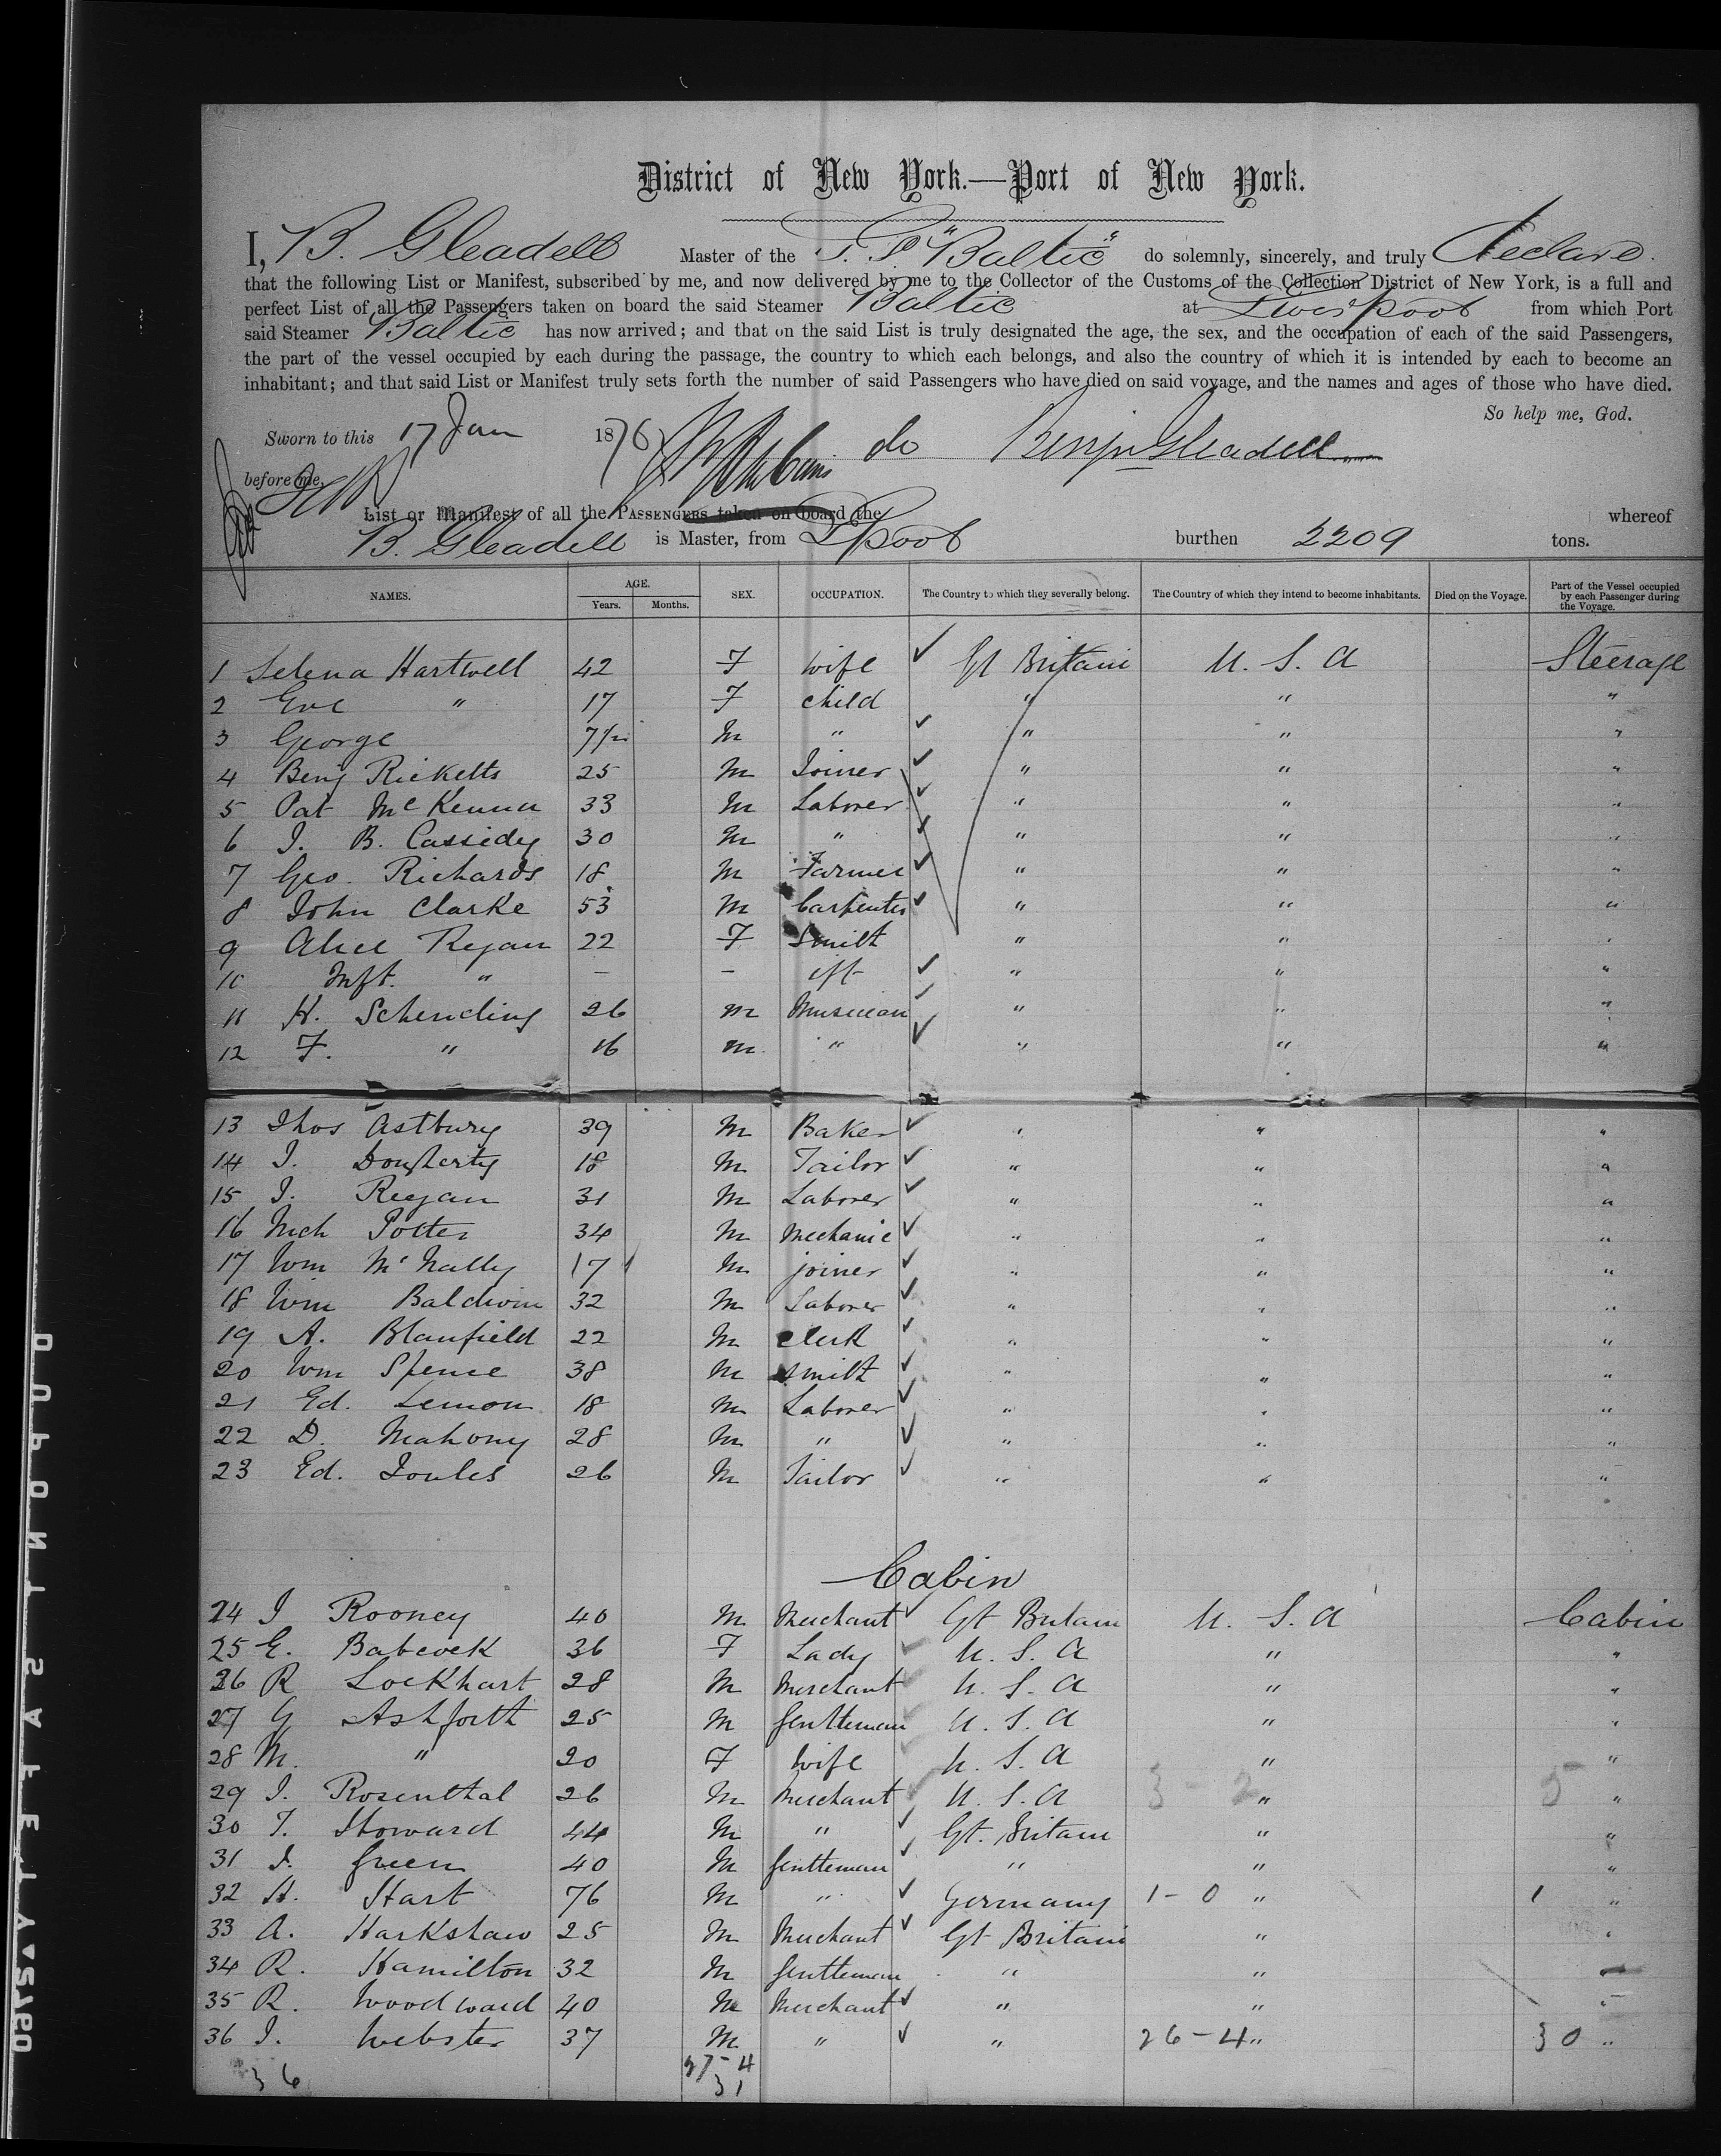 District of New York.—Port of New York.
I, B. Gleadell Master of the S. S. "Baltic" do solemnly, sincerely, and truly declare
that the following List or Manifest, subscribed by me, and now delivered by me to the Collector of the Customs of the Collection District of New York, is a full and
perfect List of all the Passengers taken on board the said Steamer Baltic at Liverpool from which Port
said Steamer Baltic has now arrived; and that on the said List is truly designated the age, the sex, and the occupation of each of the said Passengers,
the part of the vessel occupied by each during the passage, the country to which each belongs, and also the country of which it is intended by each to become an
inhabitant; and that said List or Manifest truly sets forth the number of said Passengers who have died on said voyage, and the names and ages of those who have died.
So help me, God.
Sworn to this 17 Jan 1876 do Benjn Gleadell
before me,
List or Manifest of all the PASSENGERS taken on board the whereof
B. Gleadell is Master, from LPool burthen 2209 tons.
NAMES. AGE. Years. Months. SEX. OCCUPATION. The Country to which they severally belong. The Country of which they intend to become inhabitants. Died on the Voyage. Part of the Vessel occupied by each Passenger during the Voyage.
1 Selena Hartwell 42 F wife ✓ Gt Britain U. S. A Steerage
2 Eve " 17 F child " " "
3 George M " ✓ " " "
4 Benj Ricketts 25 M Joiner ✓ " " "
5 Pat McKenna 33 M Laborer ✓ " " "
6 J. B. Cassidy 30 M " ✓ " " "
7 Geo. Richards 18 M Farmer ✓ " " "
8 John Clarke 53 M Carpenter ✓ " " "
9 Alice Ryan 22 F Smith " " "
10 Inft. " – – ✓ " " "
11 H. Schending 26 M Musician ✓ " " "
12 F. " 16 M " ✓ " " "
13 Thos Astbury 39 M Baker ✓ " " "
14 J. Dougherty 18 M Tailor ✓ " " "
15 J. Regan 31 M Laborer ✓ " " "
16 Mich Potter 34 M Mechanic ✓ " " "
17 Wm McNally 17 M joiner ✓ " " "
18 Wm Baldwin 32 M Laborer ✓ " " "
19 A. Blanfield 22 M clerk ✓ " " "
20 Wm Spence 38 M smith ✓ " " "
21 Ed. Lemon 18 M Laborer ✓ " " "
22 D. Mahony 28 M " ✓ " " "
23 Ed. Joules 26 M Tailor ✓ " " "
Cabin
24 J Rooney 40 M Merchant ✓ Gt Britain U. S. A Cabin
25 E. Babcock 36 F Lady ✓ U. S. A " "
26 R Lockhart 28 M Merchant ✓ U. S. A " "
27 G Ashforth 25 M Gentleman U. S. A " "
28 M. " 20 F Wife ✓ U. S. A " "
29 J. Rosenthal 26 M Merchant ✓ U. S. A 3 - 2 " 5 "
30 T. Howard 44 M " ✓ Gt. Britain " "
31 J. Green 40 M Gentleman ✓ " " "
32 H. Hart 76 M " ✓ Germany 1 - 0 " 1 "
33 A. Harkshaw 25 M Merchant ✓ Gt Britain " "
34 R. Hamilton 32 M Gentleman " " "
35 R. Woodward 40 M Merchant ✓ " " "
36 J. Webster 37 M " ✓ " 26 - 4 " 30 "
36 27 - 4
31
DUPONT SAFETY